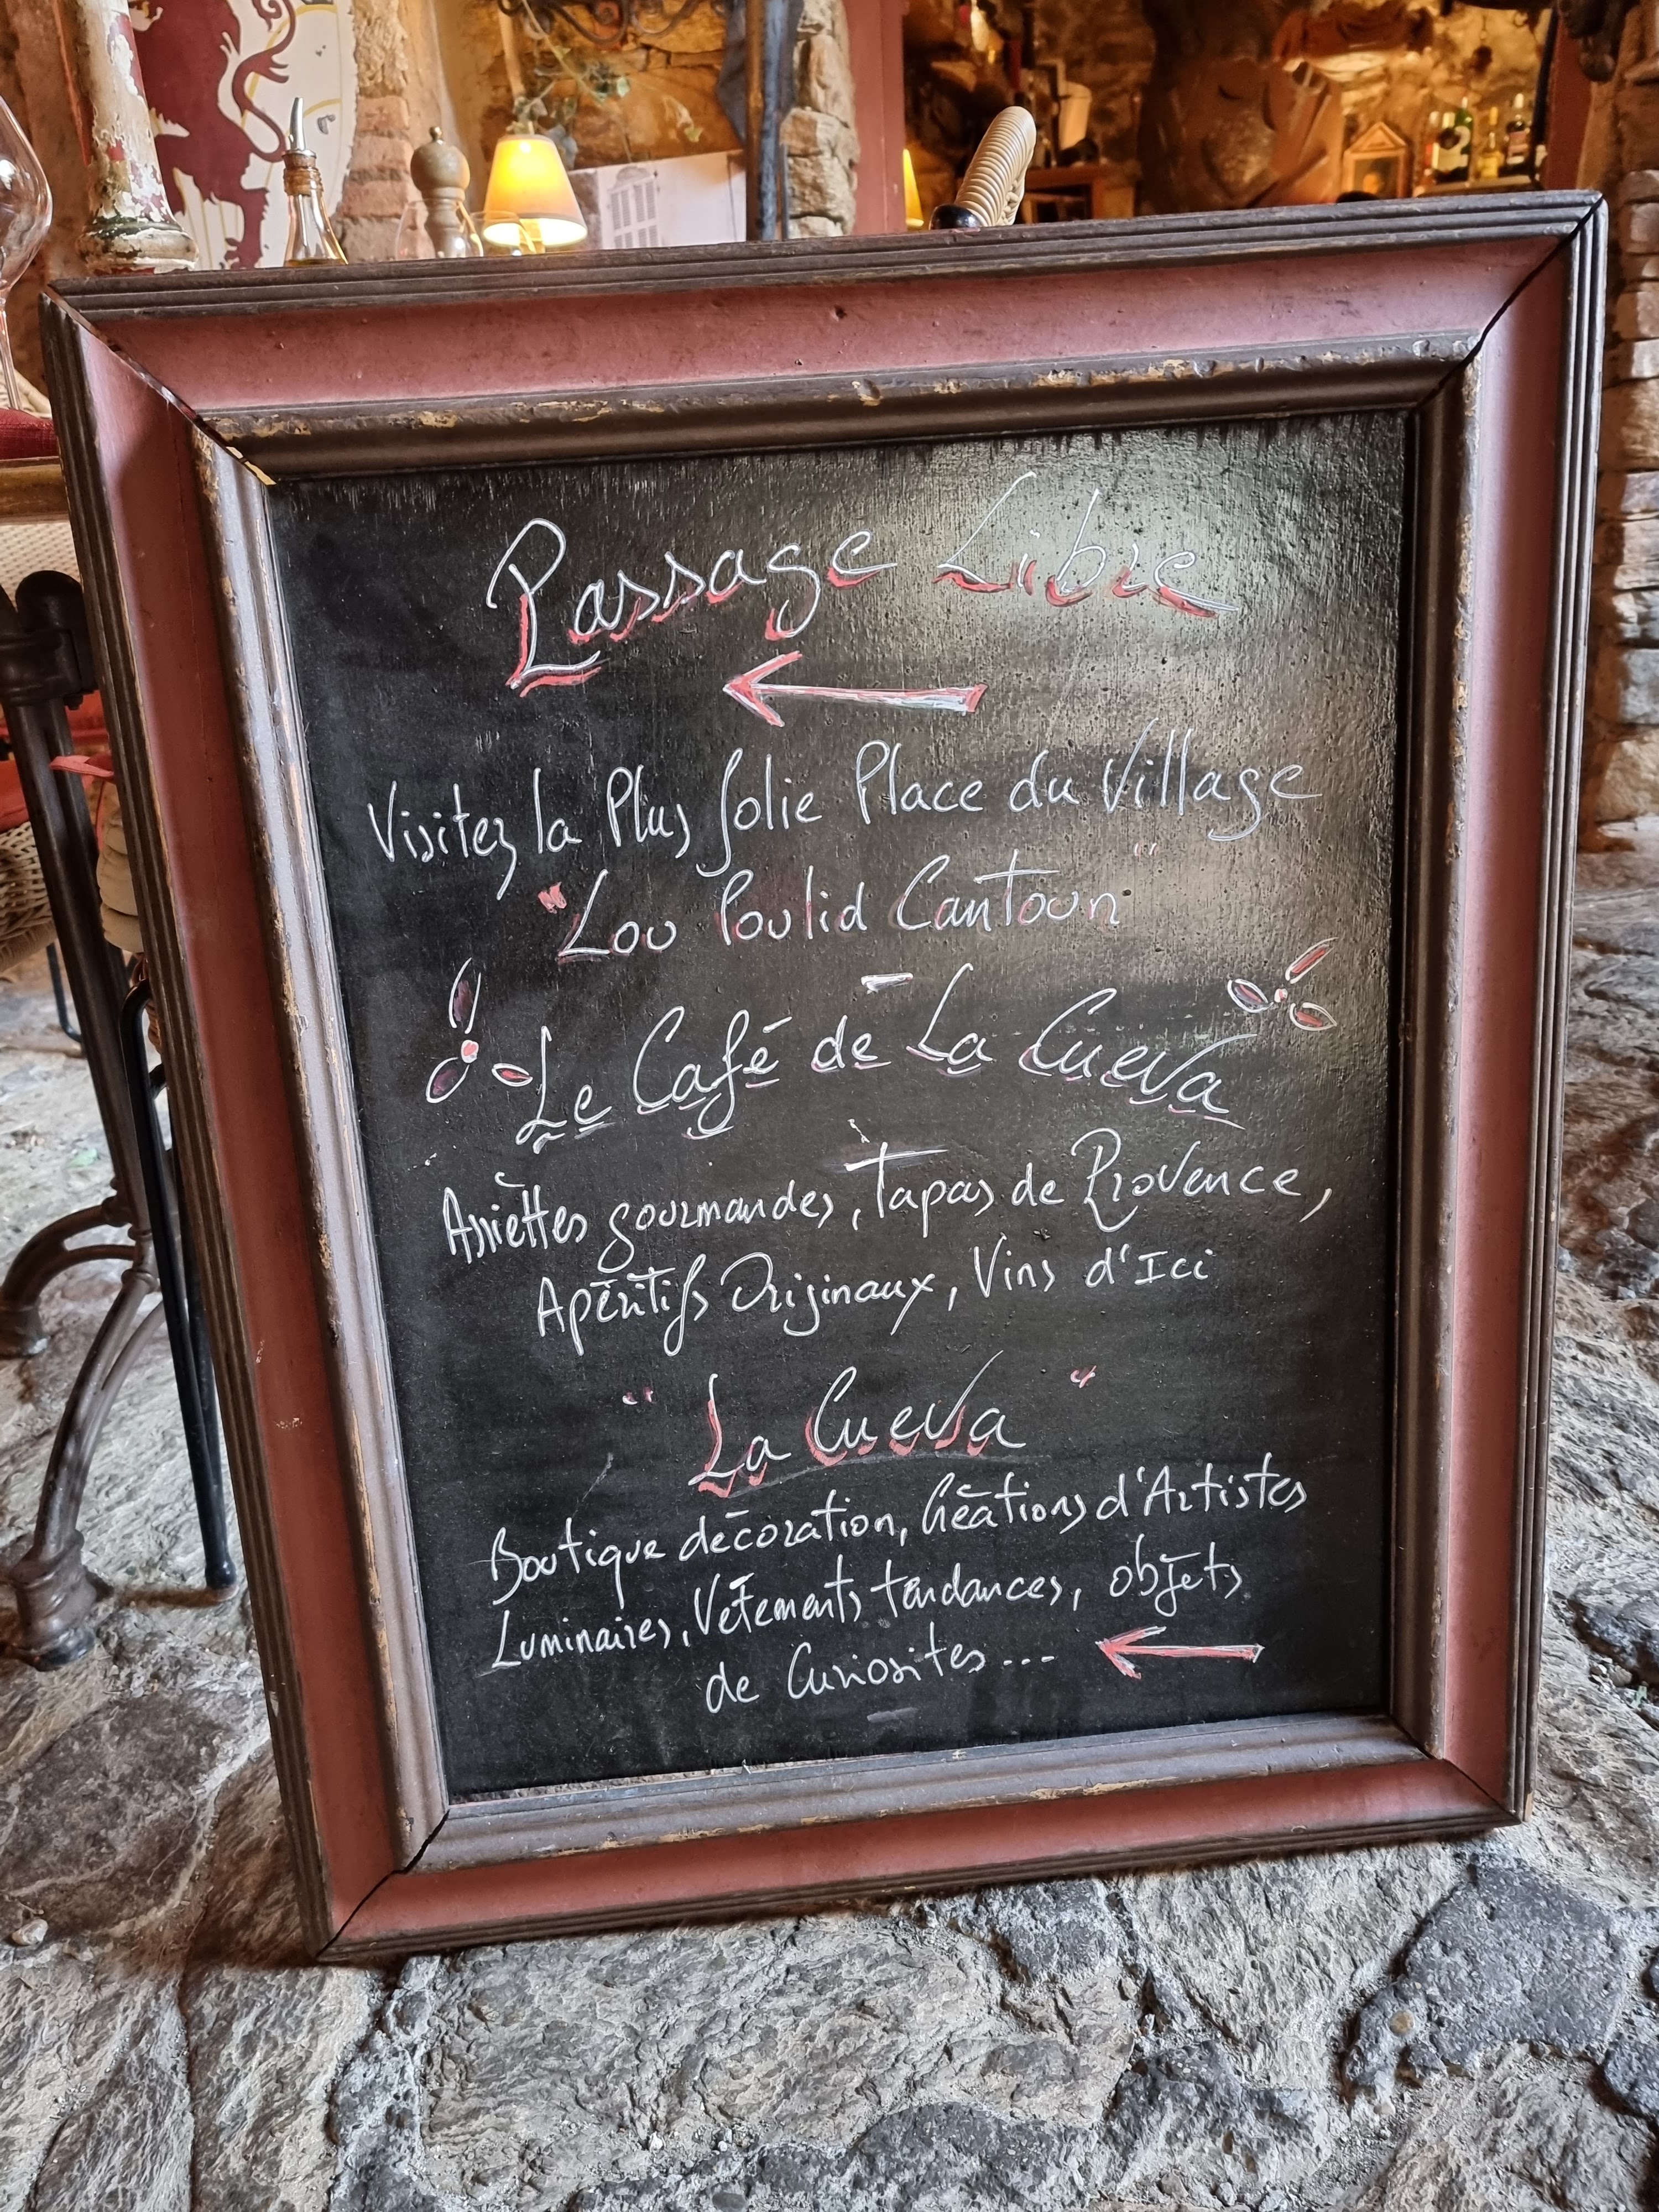 Passage Libre
Visitez la Plus Jolie Place du Village
"Lou Poulid Cantoun"
Le Café de La Cueva
Assiettes gourmandes, Tapas de Provence,
Apéritifs Originaux, Vins d'Ici
"La Cueva"
Boutique décoration, Créations d'Artistes
Luminaires, Vêtements tendances, objets
de Curiosites...